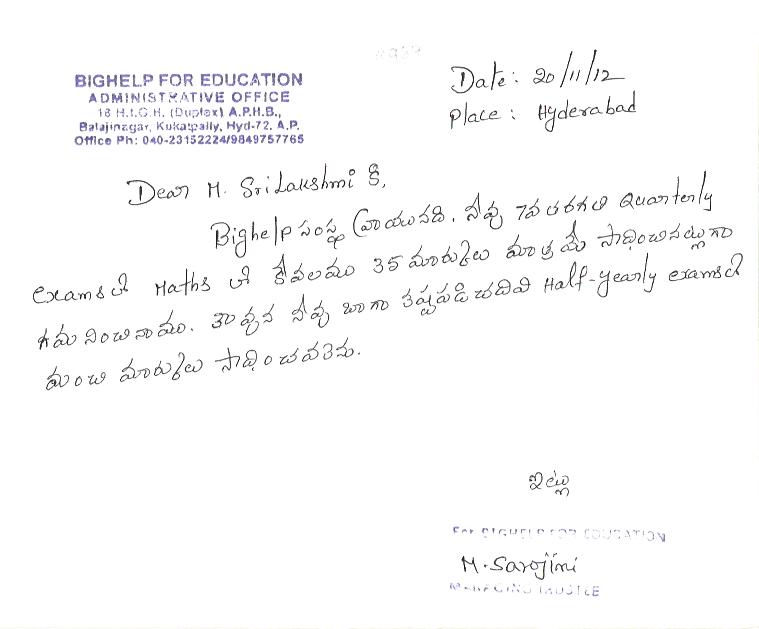 BIGHELP FOR EDUCATION
ADMINISTRATIVE OFFICE
18 H.I.G.H. (Duplex) A.P.H.B.,
Balajinagar, Kukatpally, Hyd-72. A.P.
Office Ph: 040-23152224/9849757765
Date: 20/11/12
Place: Hyderabad
Dear M. SriLakshmi కి,
Bighelp సంస్థ వ్రాయునది. నీవు 7వ తరగతి Quarterly
exams లో Maths లో కేవలము 35 మార్కులు మాత్రమే సాధించినట్లుగా
గమనించినాము. కావున నీవు బాగా కష్టపడి చదివి Half-yearly examsలో
మంచి మార్కులు సాధించవలెను.
ఇట్లు
For BIGHELP FOR EDUCATION
M. Sarojini
MANAGING TRUSTEE